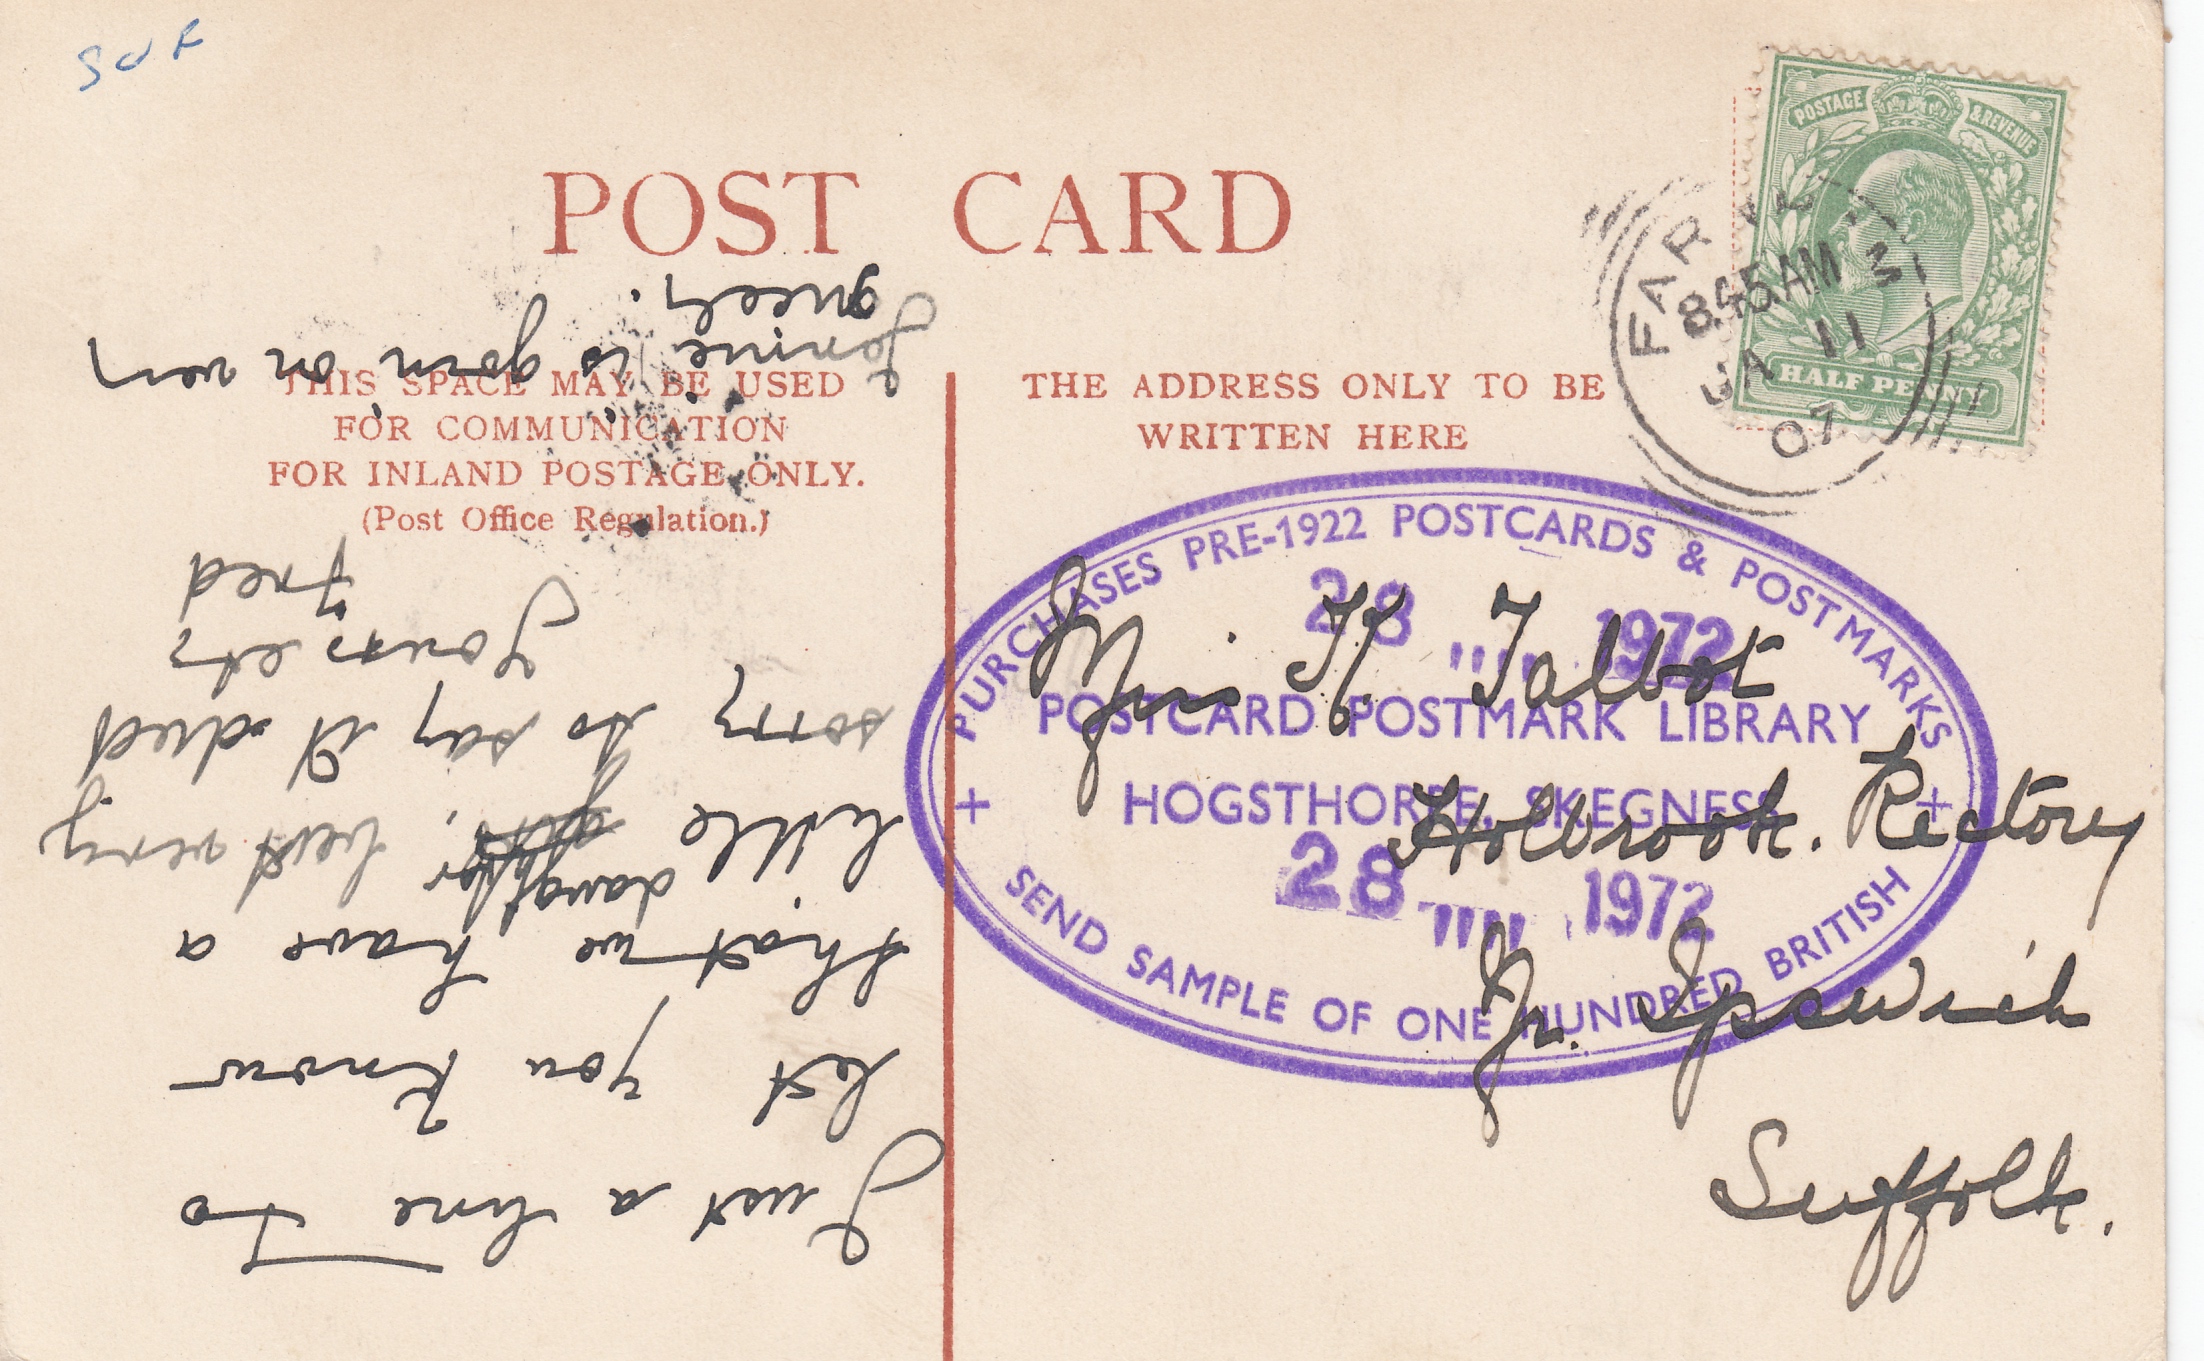 SUF
POST CARD
POSTAGE & REVENUE
HALF PENNY
8.45 AM
JA 11
07
THIS SPACE MAY BE USED
FOR COMMUNICATION
FOR INLAND POSTAGE ONLY.
(Post Office Regulation.)
THE ADDRESS ONLY TO BE
WRITTEN HERE
Just a line to
let you know
that we have a
little daughter, but very
sorry to say it died
Yours etc
Fred
is goin on very
Miss H. Talbot
Holbrook. Rectory
Nr. Ipswich
Suffolk.
+ PURCHASES PRE-1922 POSTCARDS & POSTMARKS +
28 1972
POSTCARD POSTMARK LIBRARY
HOGSTHORPE, SKEGNESS
28 1972
SEND SAMPLE OF ONE HUNDRED BRITISH